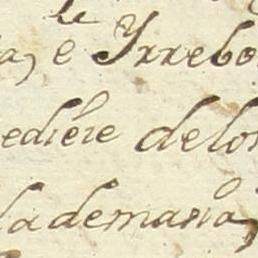 le
a, e Yrrebo
ediere delos
la demasia,